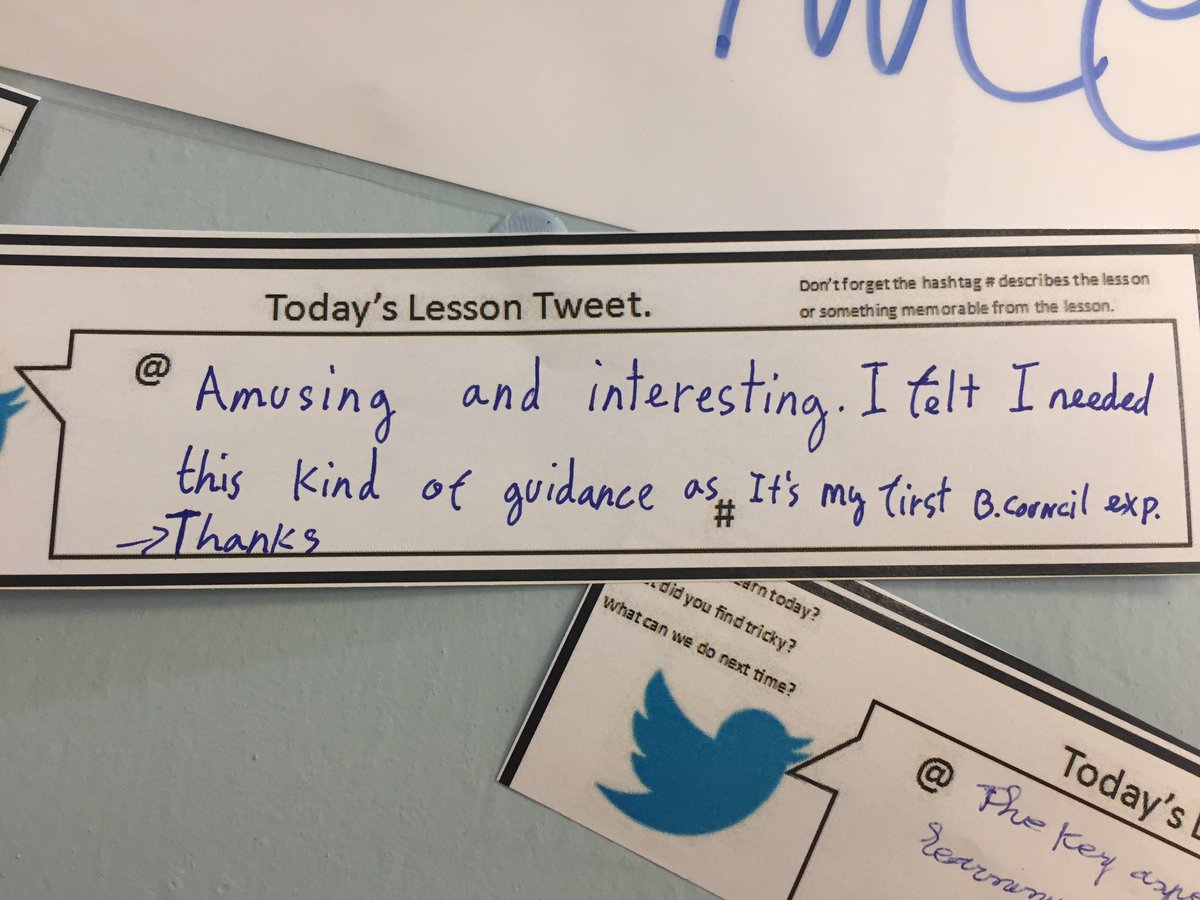 Today's Lesson Tweet.
Don't forget the hashtag # describes the lesson
or something memorable from the lesson.
@ Amusing and interesting. I felt I needed
this kind of guidance as # It's my first B.Council exp.
→Thanks
did you find tricky?
What can we do next time?
Today's
@ The Key